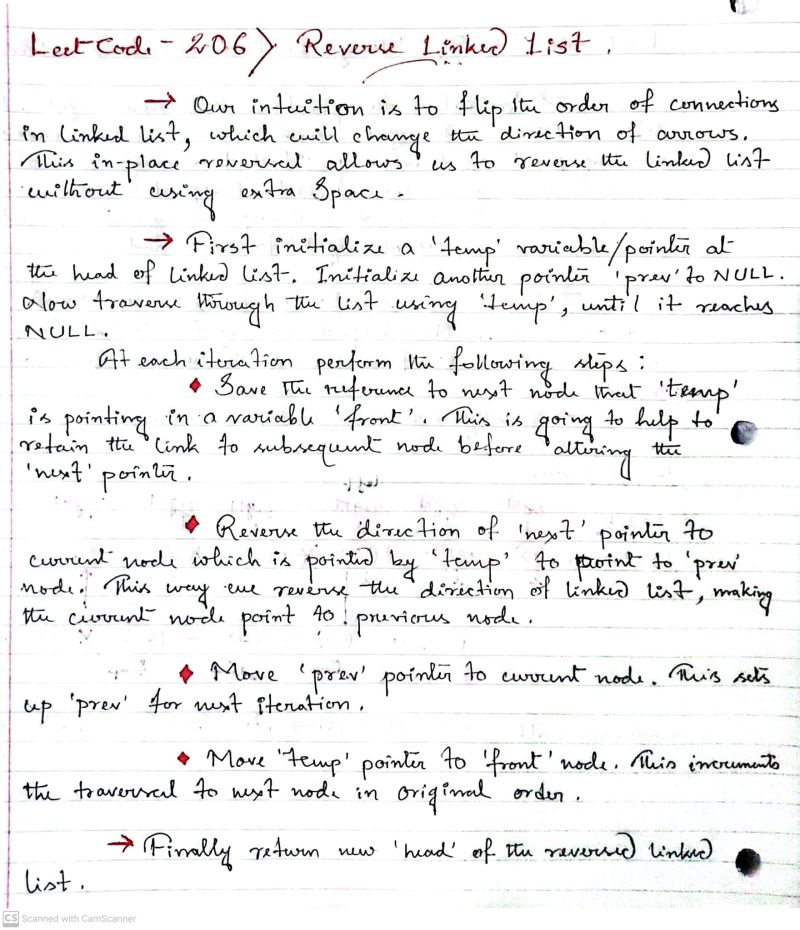 LeetCode - 206 > Reverse Linked List.
→ Our intuition is to flip the order of connections
in linked list, which will change the direction of arrows.
This in-place reversal allows us to reverse the linked list
without using extra space.
→ First initialize a 'temp' variable/pointer at
the head of linked list. Initialize another pointer 'prev' to NULL.
Now traverse through the list using 'temp', until it reaches
NULL.
At each iteration perform the following steps:
♦ Save the reference to next node that 'temp'
is pointing in a variable 'front'. This is going to help to
retain the link to subsequent node before altering the
'next' pointer.
♦ Reverse the direction of 'next' pointer to
current node which is pointed by 'temp' to point to 'prev'
node. This way we reverse the direction of linked list, making
the current node point to previous node.
♦ Move 'prev' pointer to current node. This sets
up 'prev' for next iteration.
♦ Move 'temp' pointer to 'front' node. This increments
the traversal to next node in original order.
→ Finally return new 'head' of the reversed linked
list.
CS Scanned with CamScanner